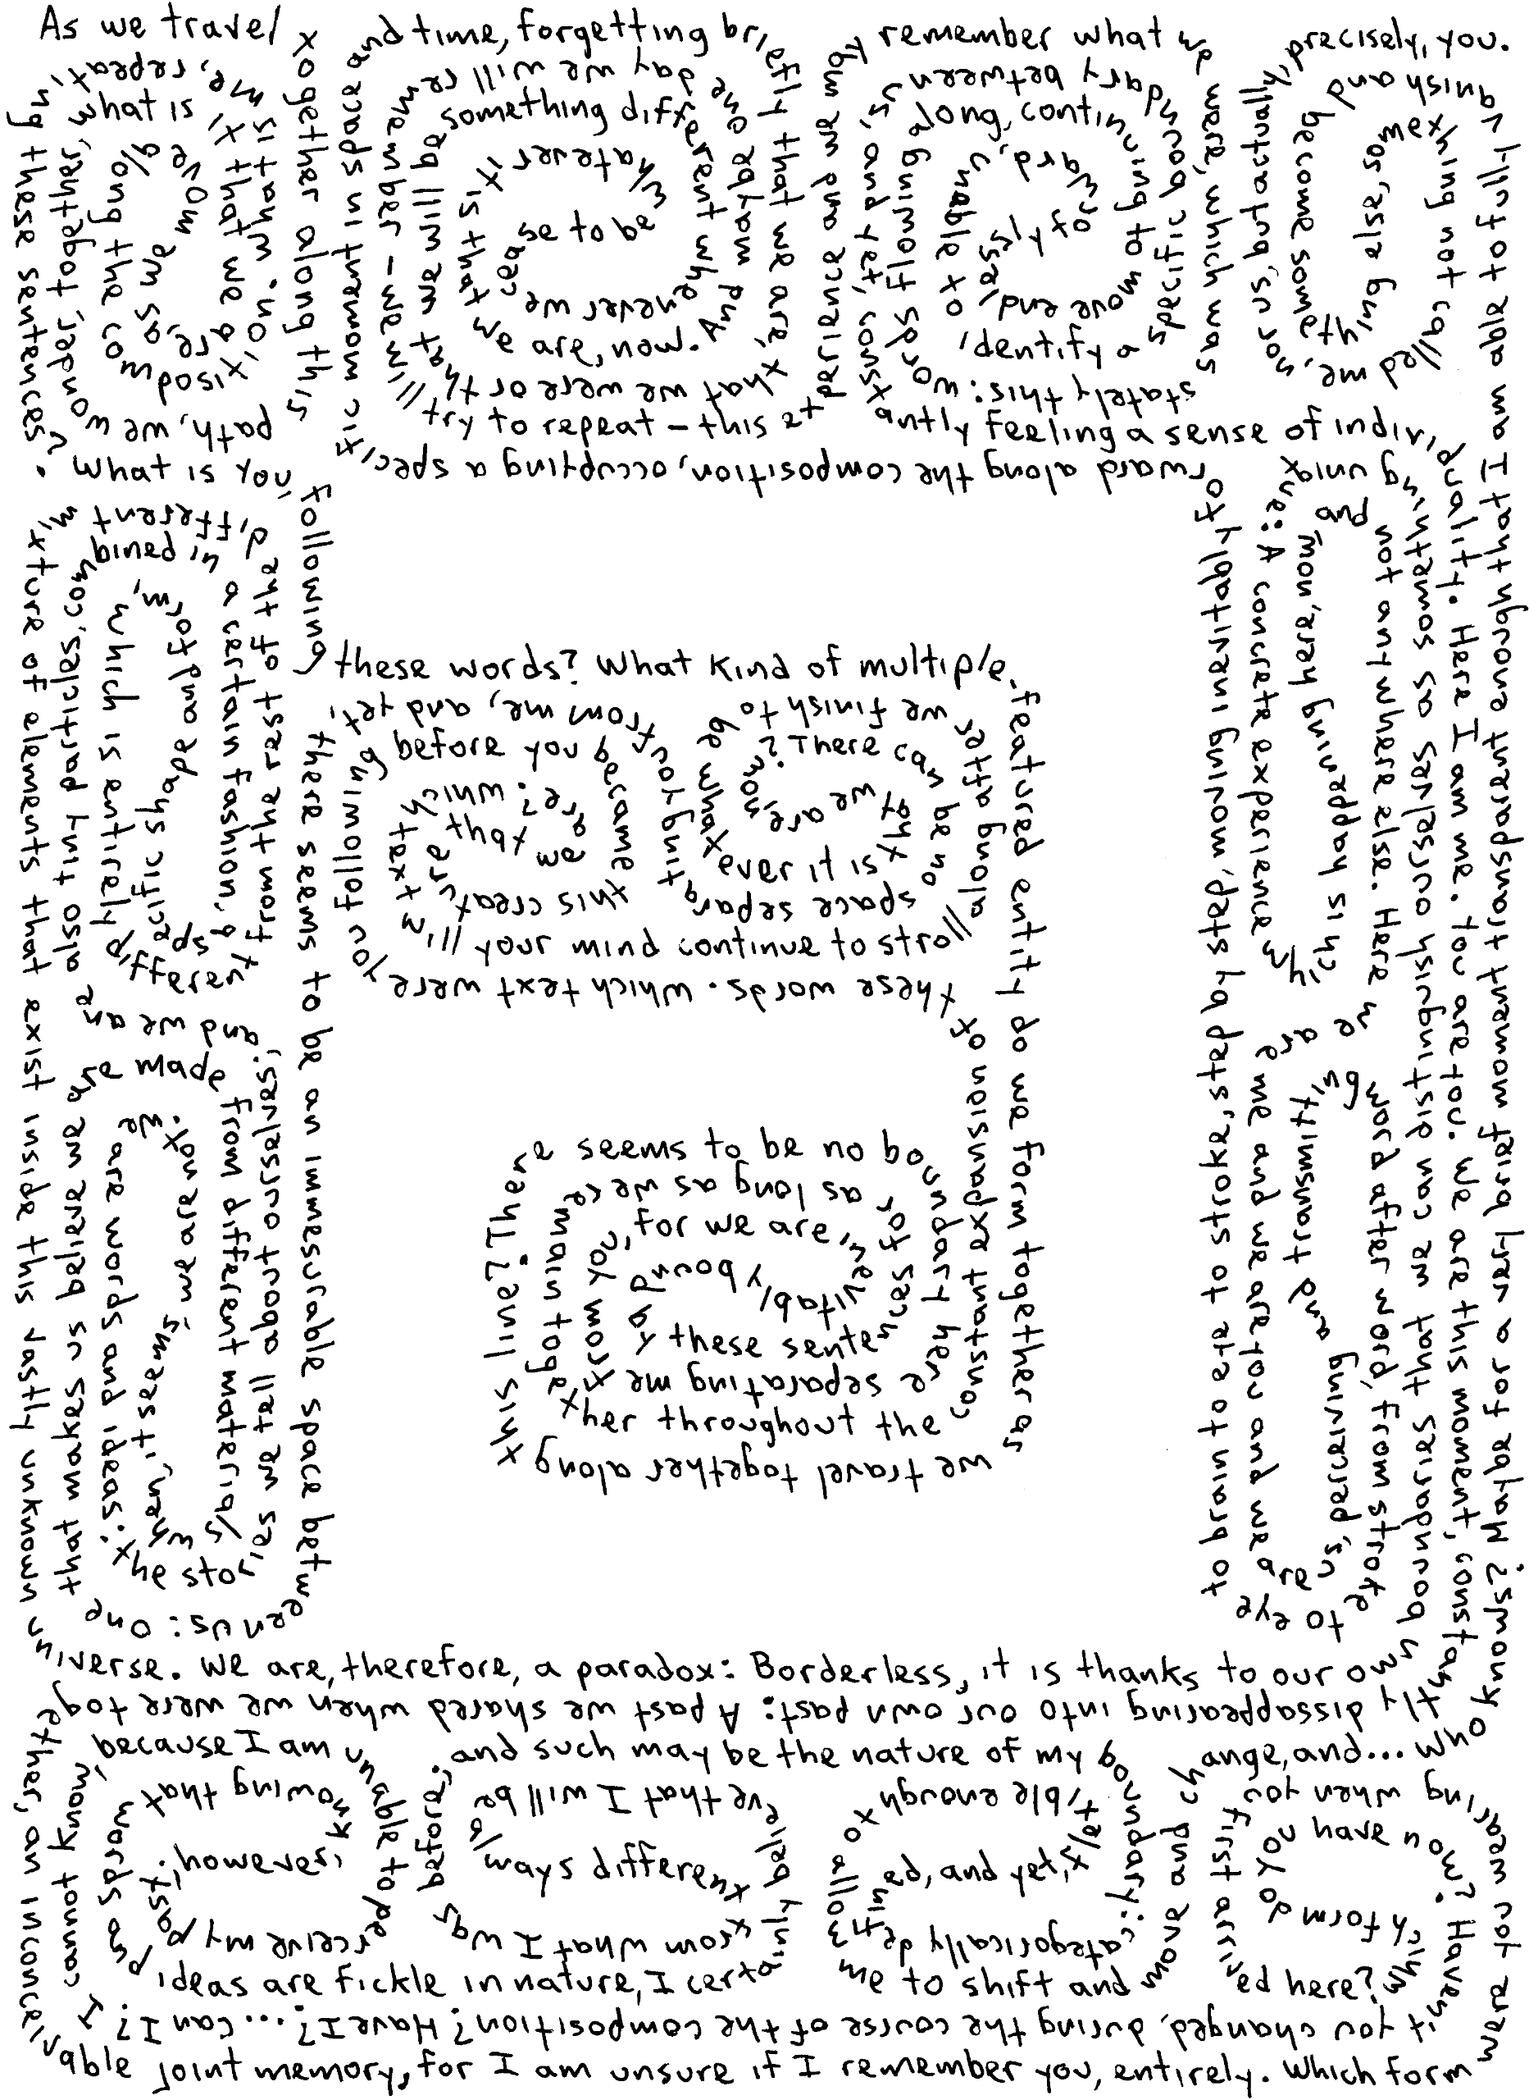 As we travel together along this path, we wonder, together, what is it that we are, as we move along the composition. What is me, repeating these sentences? What is you, following these words? What kind of multiple featured entity do we form together as we travel together along this line? There seems to be no boundary here separating me from you, for we are inevitably bound by these sentences for as long as we remain together throughout the constant expansion of these words. Which text were you following before you became this creature that we are? Which texture will your mind continue to stroll along after we finish to be whatever it is that we are, now? There can be no space separating you from me, and yet, there seems to be an immesurable space between us: One that makes us believe we are made from different materials when, it seems, we are not. We are words and ideas: the stories we tell about ourselves, and we are also tiny particles, combined in a certain fashion, a specific shape and form, which is entirely different from the rest of the different mixture of elements that exist inside this vastly unknown universe. We are, therefore, a paradox: Borderless, it is thanks to our own boundaries that we can distinguish ourselves as something unique: A concrete experience which is happening here, now, and not anywhere else. Here we are me and we are you and we are us, perceiving and transmitting word after word, from stroke to eye to brain to to stroke, step by step, moving inevitably forward along the composition, occupying a specific moment in space and time, forgetting briefly that we are, that we were or that we will be something different whenever we cease to be whatever it is that we are, now. And maybe one day we will remember – we will try to repeat – this experience and maybe remember what we were, which was this: words flowing along, continuing to move endlessly forward, unable to identify a specific boundary between us, and yet, constantly feeling a sense of individuality. Here I am me. You are you. We are this moment, constantly dissappearing into our own past: A past we shared when we were together, an inconceivable joint memory, for I am unsure if I remember you, entirely. Which form were you wearing when you first arrived here? Which form do you have now? Have you changed, during the course of the composition? Have I?... Can I? I cannot know, because I am unable to perceive my past, however, knowing that words and ideas are fickle in nature, I certainly believe that I will be always different from what I was before; and such may be the nature of my boundary: categorically defined, and yet, flexible enough to allow me to shift and move and change, and... who knows? Maybe for a very brief moment transparent enough that I am able to fully vanish and become something else, something not called me, nor us, but actually, precisely, you.